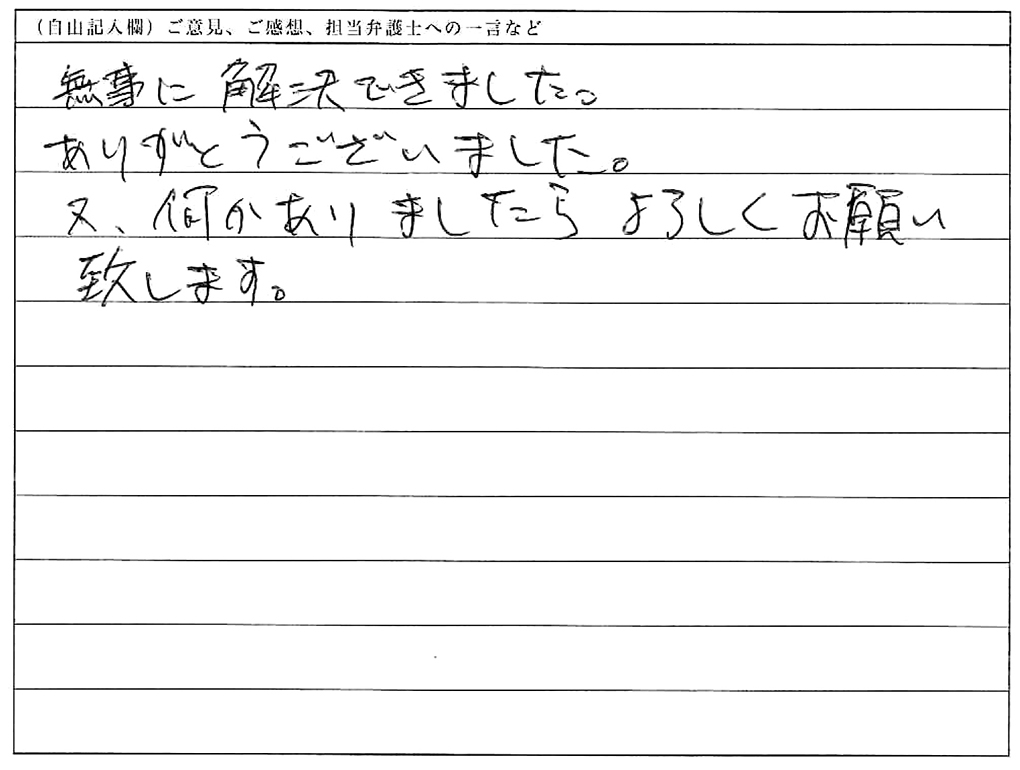 （自由記入欄）ご意見、ご感想、担当弁護士への一言など
無事に解決できました。
ありがとうございました。
又、何かありましたらよろしくお願い
致します。